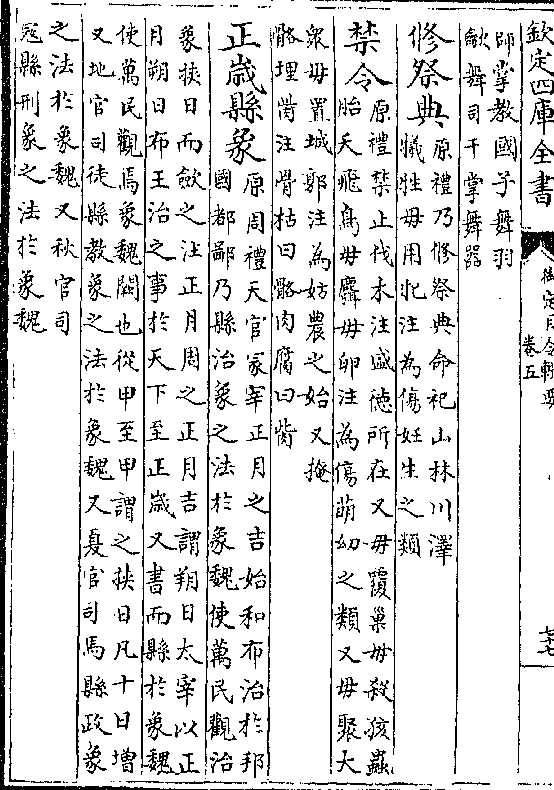 欽定四庫全書
御定月令輯要
卷五
七
師掌教國子舞羽
龡舞司干掌舞器
修祭典
原禮乃修祭典命祀山林川澤
犧牲毋用牝注為傷妊生之類
禁令
原禮禁止伐木注盛徳所在又毋覆巢毋殺孩蟲
胎夭飛鳥毋麛毋卵注為傷萌幼之類又毋聚大
衆毋置城郭注為妨農之始又掩
骼埋胔注骨枯曰骼肉腐曰胔
正歲縣象
原周禮天官冢宰正月之吉始和布治於邦
國都鄙乃縣治象之法於象魏使萬民觀治
象挟日而斂之注正月周之正月吉謂朔日太宰以正
月朔日布王治之事於天下至正歲又書而縣於象魏
使萬民觀焉象魏闕也從甲至甲謂之挟日凡十日增
又地官司徒縣教象之法於象魏又夏官司馬縣政象
之法於象魏又秋官司
冦縣刑象之法於象魏